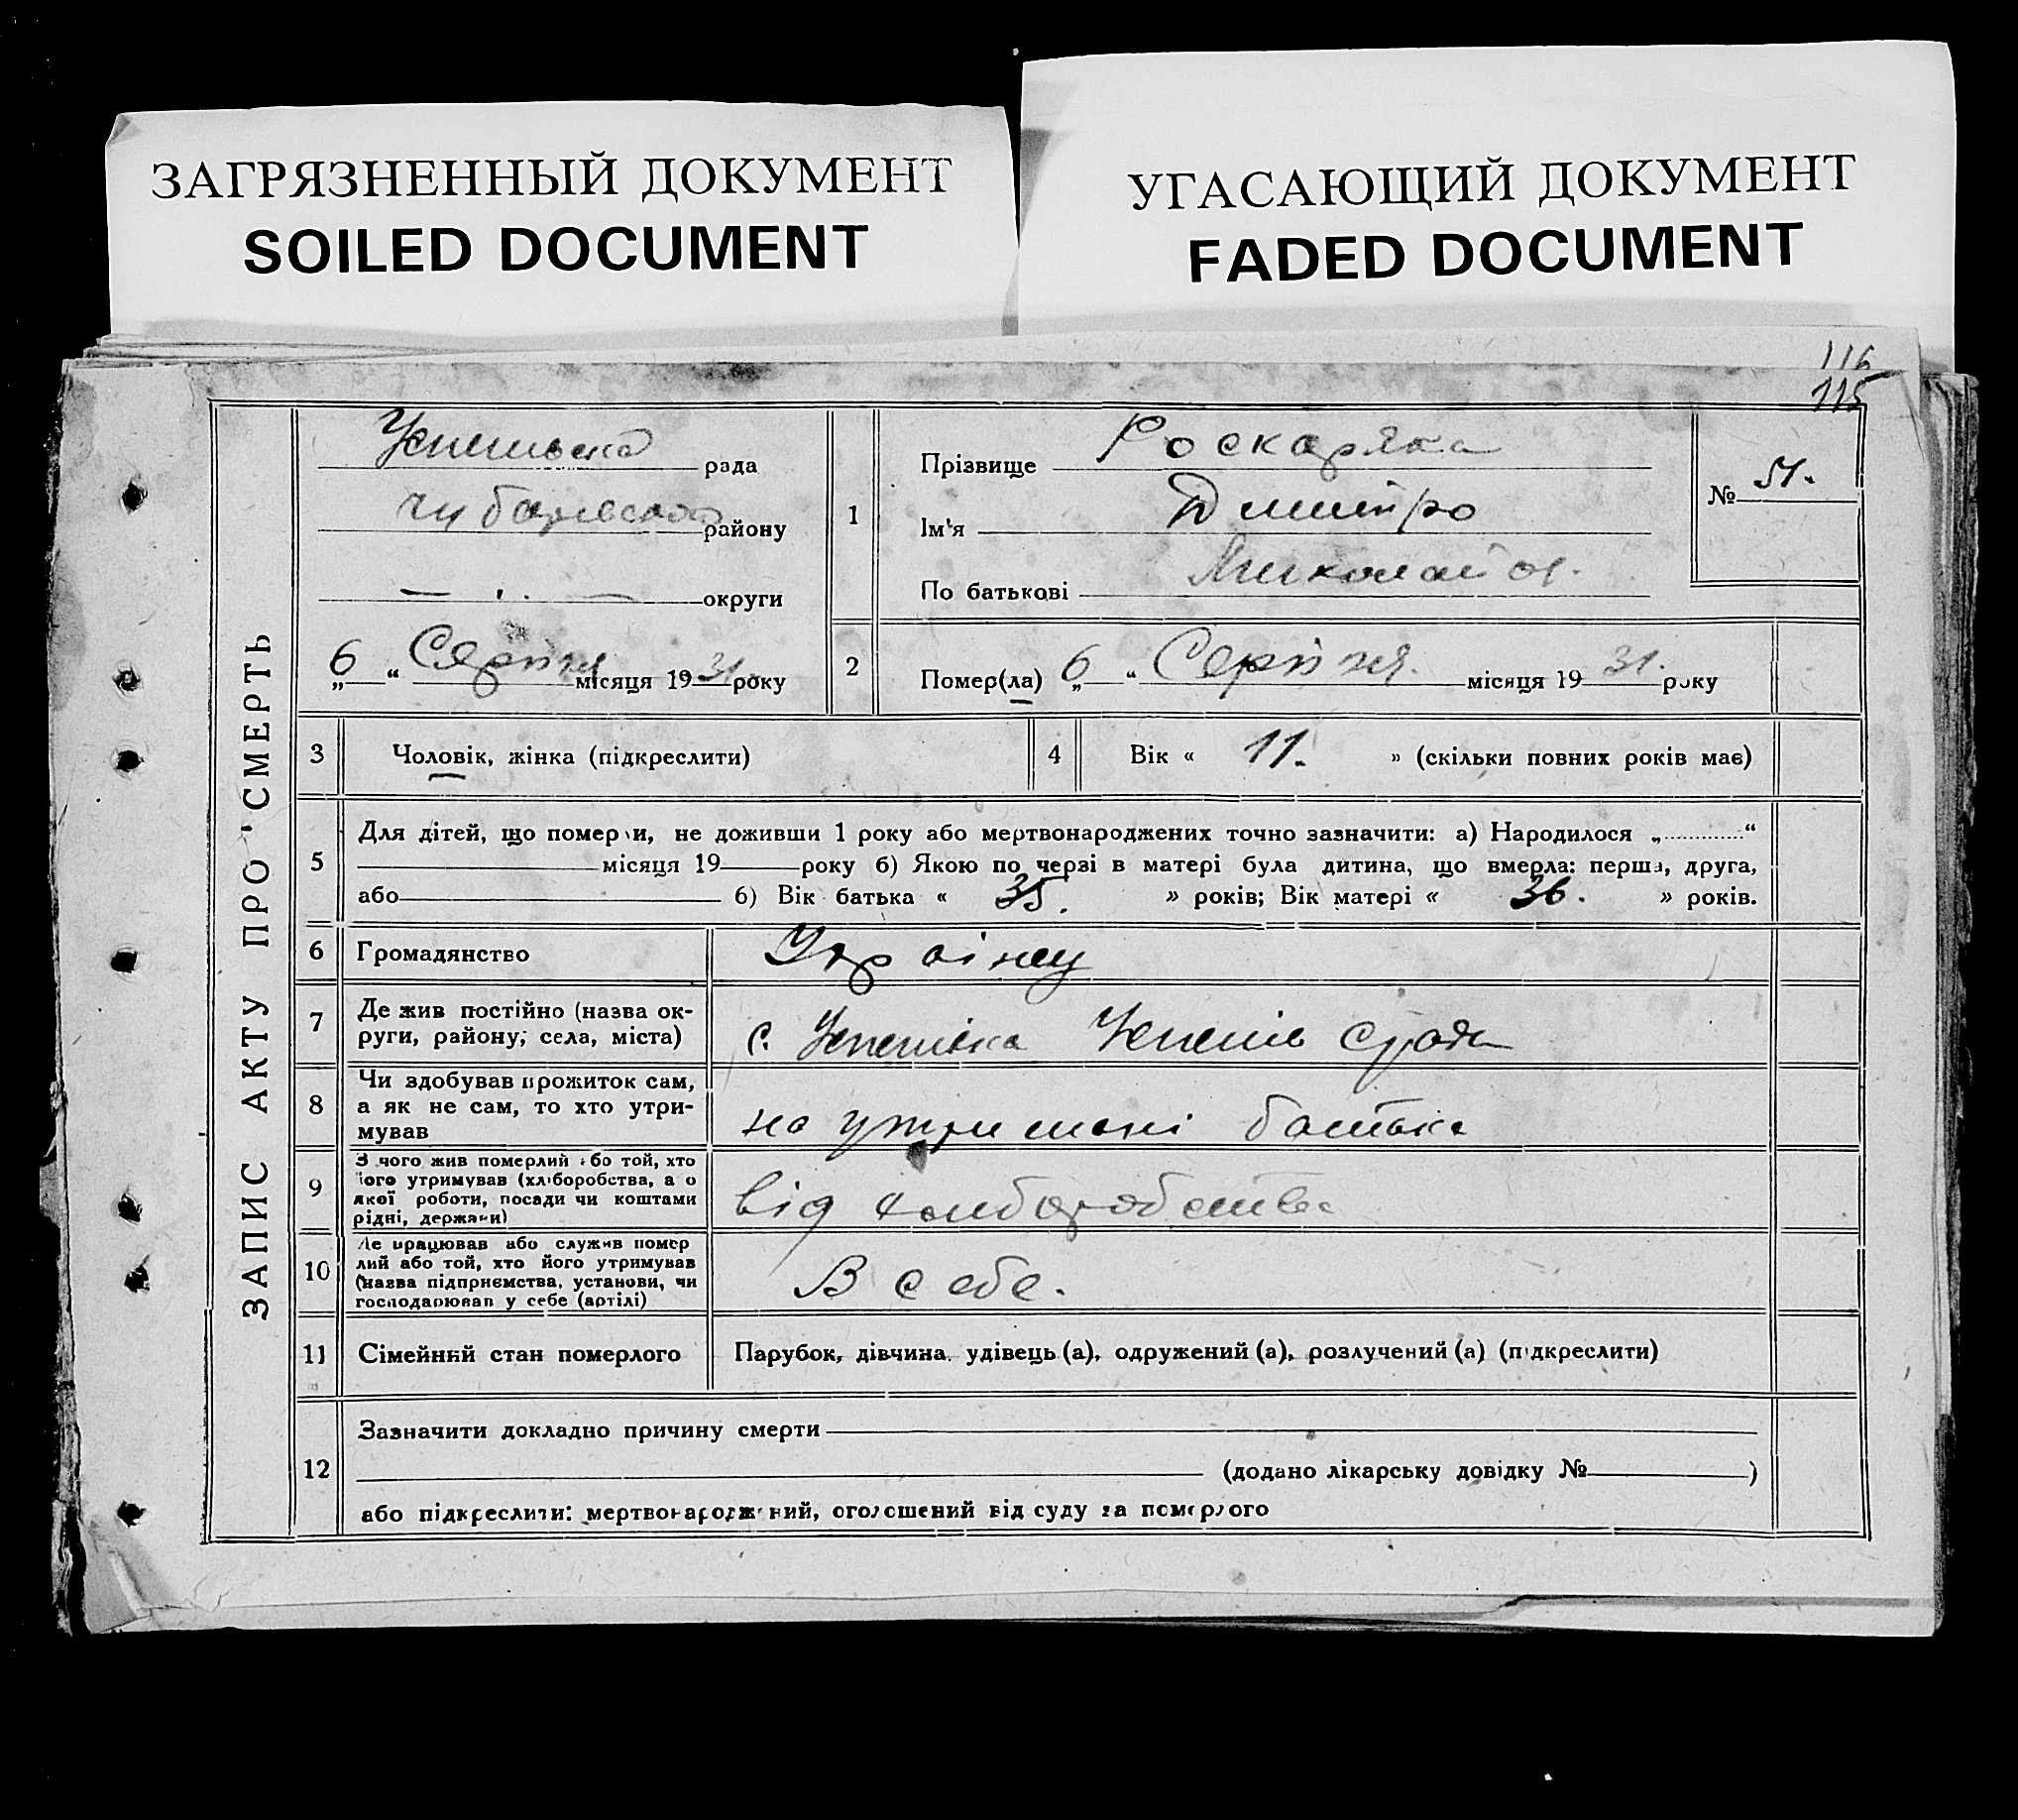 ЗАГРЯЗНЕННЫЙ ДОКУМЕНТ
SOILED DOCUMENT
УГАСАЮЩИЙ ДОКУМЕНТ
FADED DOCUMENT
116
115
ЗАПИС АКТУ ПРО СМЕРТЬ
рада
району
округи
6 " місяця 1931 року
1
Прізвище Роскаряка
Ім'я Дмитро
По батькові Николайов.
№ 51.
2
Помер(ла) „6 " Серпня. місяця 1931. року
3 Чоловік, жінка (підкреслити)
4 Вік « 11. » (скільки повних років має)
5
Для дітей, що померли, не доживши 1 року або мертвонароджених точно зазначити: а) Народилося „ “
місяця 19 року б) Якою по черзі в матері була дитина, що вмерла: перша, друга,
або 6) Вік батька « 35. » років; Вік матері « 36. » років.
6 Громадянство
7 Де жив постійно (назва ок-
руги, району, села, міста)
с. Успенівка
8 Чи здобував прожиток сам,
а як не сам, то хто утри-
мував
на утримані батька
9 З чого жив померлий або той, хто
його утримував (хліборобства, а о
якої роботи, посади чи коштами
рідні, держави)
від хліборобства
10 Де працював або служив помер
лий або той, хто його утримував
(назва підприємства, установи, чи
господарював у себе (артілі)
В себе.
11 Сімейний стан померлого
Парубок, дівчина, удівець (а), одружений (а), розлучений (а) (підкреслити)
12
Зазначити докладно причину смерти
(додано лікарську довідку № )
або підкреслити: мертвонароджений, оголошений від суду за померлого